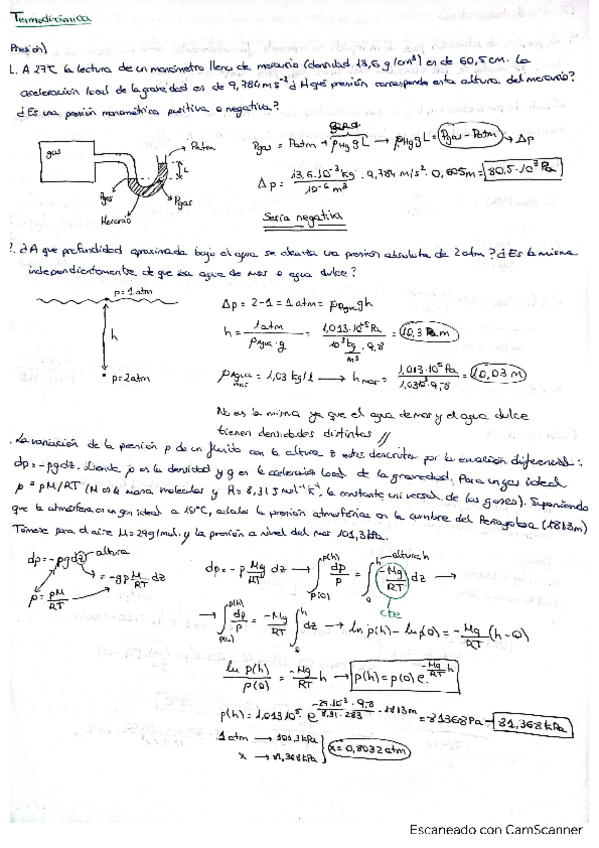 Termodinámica
Presión)
1. A 27°C la lectura de un manómetro lleno de mercurio (densidad 13,6 g/cm³) es de 60,5 cm. La
aceleración local de la gravedad es de 9,784 m s⁻² ¿A qué presión corresponde esta altura del mercurio?
¿Es una presión manométrica positiva o negativa?
gas
Patm
L
Pgas
Pgas
Mercurio
Pgas = Patm + ρHg g L → ρHg g L = Pgas - Patm → Δp
Δp = 13,6·10⁻³ kg / 10⁻⁶ m³ · 9,784 m/s² · 0,605 m = 80,5·10³ Pa
Sería negativa
2. ¿A que profundidad aproximada bajo el agua se alcanza una presión absoluta de 2 atm? ¿Es la misma
independientemente de que sea agua de mar o agua dulce?
p = 1 atm
h
p = 2 atm
Δp = 2-1 = 1 atm = ρagua g h
h = 1 atm / ρagua · g = 1,013·10⁵ Pa / 10³ kg/m³ · 9,8 = 10,3 m
ρagua mar = 1,03 kg/l → h mar = 1,013·10⁵ Pa / 1,03·10³·9,8 = 10,03 m
No es la misma ya que el agua de mar y el agua dulce
tienen densidades distintas //
. La variación de la presión p de un fluido con la altura z está descrita por la ecuación diferencial:
dp = -ρgdz. Donde ρ es la densidad y g es la aceleración local de la gravedad. Para un gas ideal
ρ = pM/RT (M es la masa molecular y R = 8,31 J mol⁻¹ K⁻¹, la constante universal de los gases). Suponiendo
que la atmósfera es un gas ideal a 10°C, calcular la presión atmosférica en la cumbre del Peñagolosa (1813m)
Tómese para el aire M = 29g/mol. y la presión a nivel del mar 101,3 kPa.
dp = -ρgdz altura
= -gp M/RT dz
ρ = pM/RT
dp = -p Mg/RT dz → ∫p(0)p(h) dp/p = ∫0h -Mg/RT dz →
altura h
cte
→ ∫p(0)p(h) dp/p = -Mg/RT ∫0h dz → ln p(h) - ln p(0) = -Mg/RT (h-0)
ln p(h)/p(0) = -Mg/RT h → p(h) = p(0) e^(-Mg/RT h)
p(h) = 1,013·10⁵ · e^(-29·10⁻³ · 9,8 / 8,31 · 283 · 1813m) = 81368 Pa → 81,368 kPa
1 atm → 101,3 kPa
x → 81,368 kPa
x = 0,8032 atm
Escaneado con CamScanner